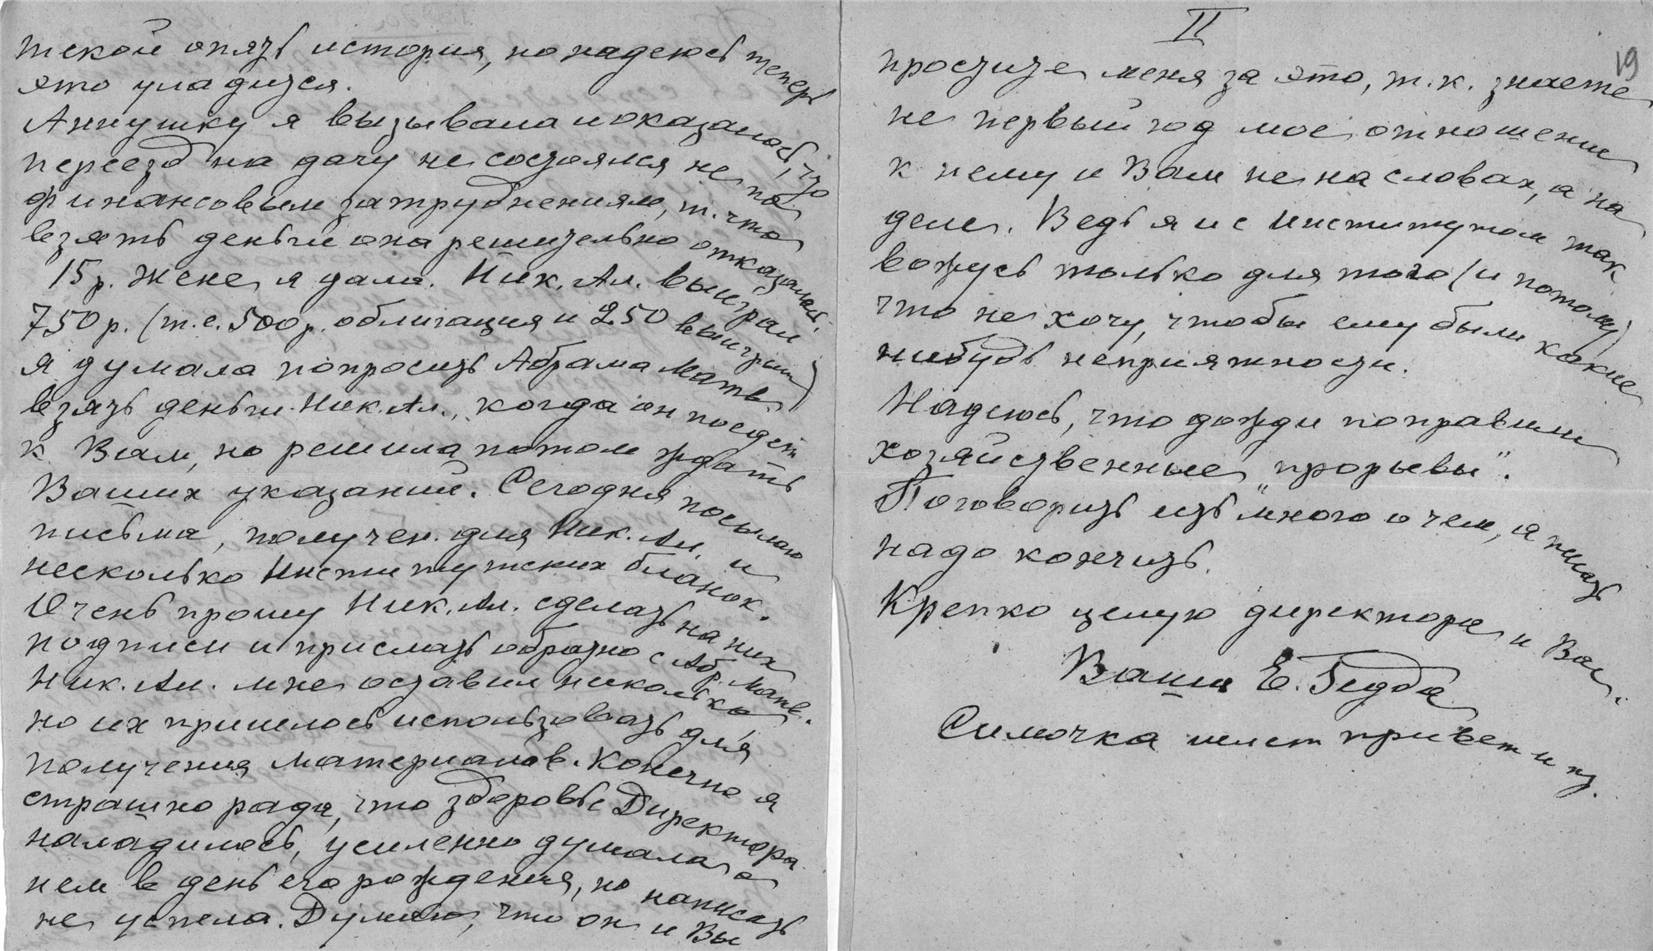 текой опять история, но надеюсь теперь
это уладится.
Аннушку я вызывала и оказалось, что
переезд на дачу не состоялся не по
финансовым затруднениям, т. что
взять деньги она решительно отказалась.
15 р. жене я дала. Ник. Ал. выиграл
750 р. (т.е. 500 р. облигация и 250 выигрыш)
Я думала попросить Абрама Матв.
взять деньги Ник. Ал., когда он поедет
к Вам, но решила потом ждать
Ваших указаний. Сегодня посылаю
письма, получен. для Ник. Ал. и
несколько Институтских бланок.
Очень прошу Ник. Ал. сделать на них
подписи и прислать обратно с Абр. Матв.
Ник. Ал. мне оставил несколько
но их пришлось использовать для
получения материалов. Конечно я
страшно рада, что здоровье Директора
наладилось, усиленно думала о
нем в день его рождения, но написать
не успела. Думаю, что он и Вы
II
19
простите меня за это, т.к. знаете
не первый год мое отношение
к нему и Вам не на словах, а на
деле. Ведь я и с Институтом так
вожусь только для того (и потому)
что не хочу, чтобы ему были какие
нибудь неприятности.
Надеюсь, что дожди поправили
хозяйственные "прорывы".
Поговорить есть много о чем, а писать
надо кончить.
Крепко целую директора и Вас.
Ваша Е. Гедда
Симочка шлет привет и